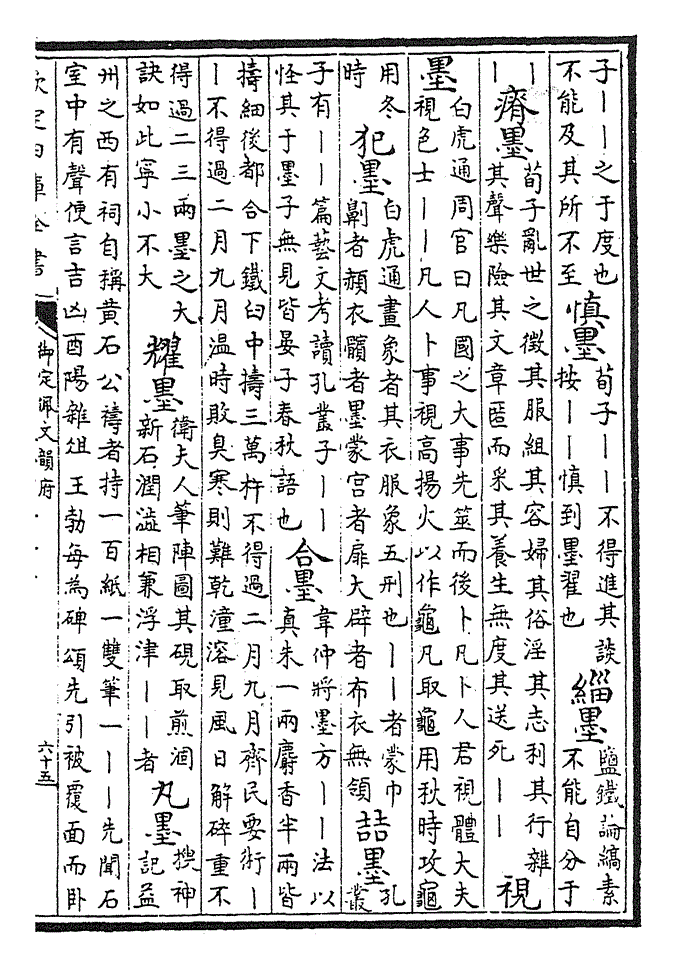 子丨丨之于度也
不能及其所不至
慎墨
荀子丨丨不得進其談
按丨丨慎到墨翟也
緇墨
鹽鐵論縞素
不能自分于
丨
丨
瘠墨
荀子亂世之徵其服組其容婦其俗淫其志利其行雜
其聲樂險其文章匿而采其養生無度其送死丨丨
視
墨
白虎通周官曰凡國之大事先筮而後卜凡卜人君視體大夫
視色士丨丨凡人卜事視高揚火以作龜凡取龜用秋時攻龜
用冬
時
犯墨
白虎通畫象者其衣服象五刑也丨丨者蒙巾
劓者頳衣髕者墨蒙宮者扉大辟者布衣無領
詰墨
孔
叢
子有丨丨篇藝文考讀孔叢子丨丨
怪其于墨子無見皆晏子春秋語也
合墨
韋仲將墨方丨丨法以
真朱一兩麝香半兩皆
擣細後都合下鐵臼中擣三萬杵不得過二月九月齊民要術丨
丨不得過二月九月温時敗臭寒則難乾潼溶見風日解碎重不
得過二三兩墨之大
訣如此寧小不大
耀墨
衛夫人筆陣圖其硯取煎涸
新石潤澁相兼浮津丨丨者
丸墨
搜神
記益
州之西有祠自稱黄石公禱者持一百紙一雙筆一丨丨先聞石
室中有聲便言吉凶酉陽雜俎王勃每為碑頌先引被覆面而卧
欽定四庫全書
御定佩文韻府
六十五